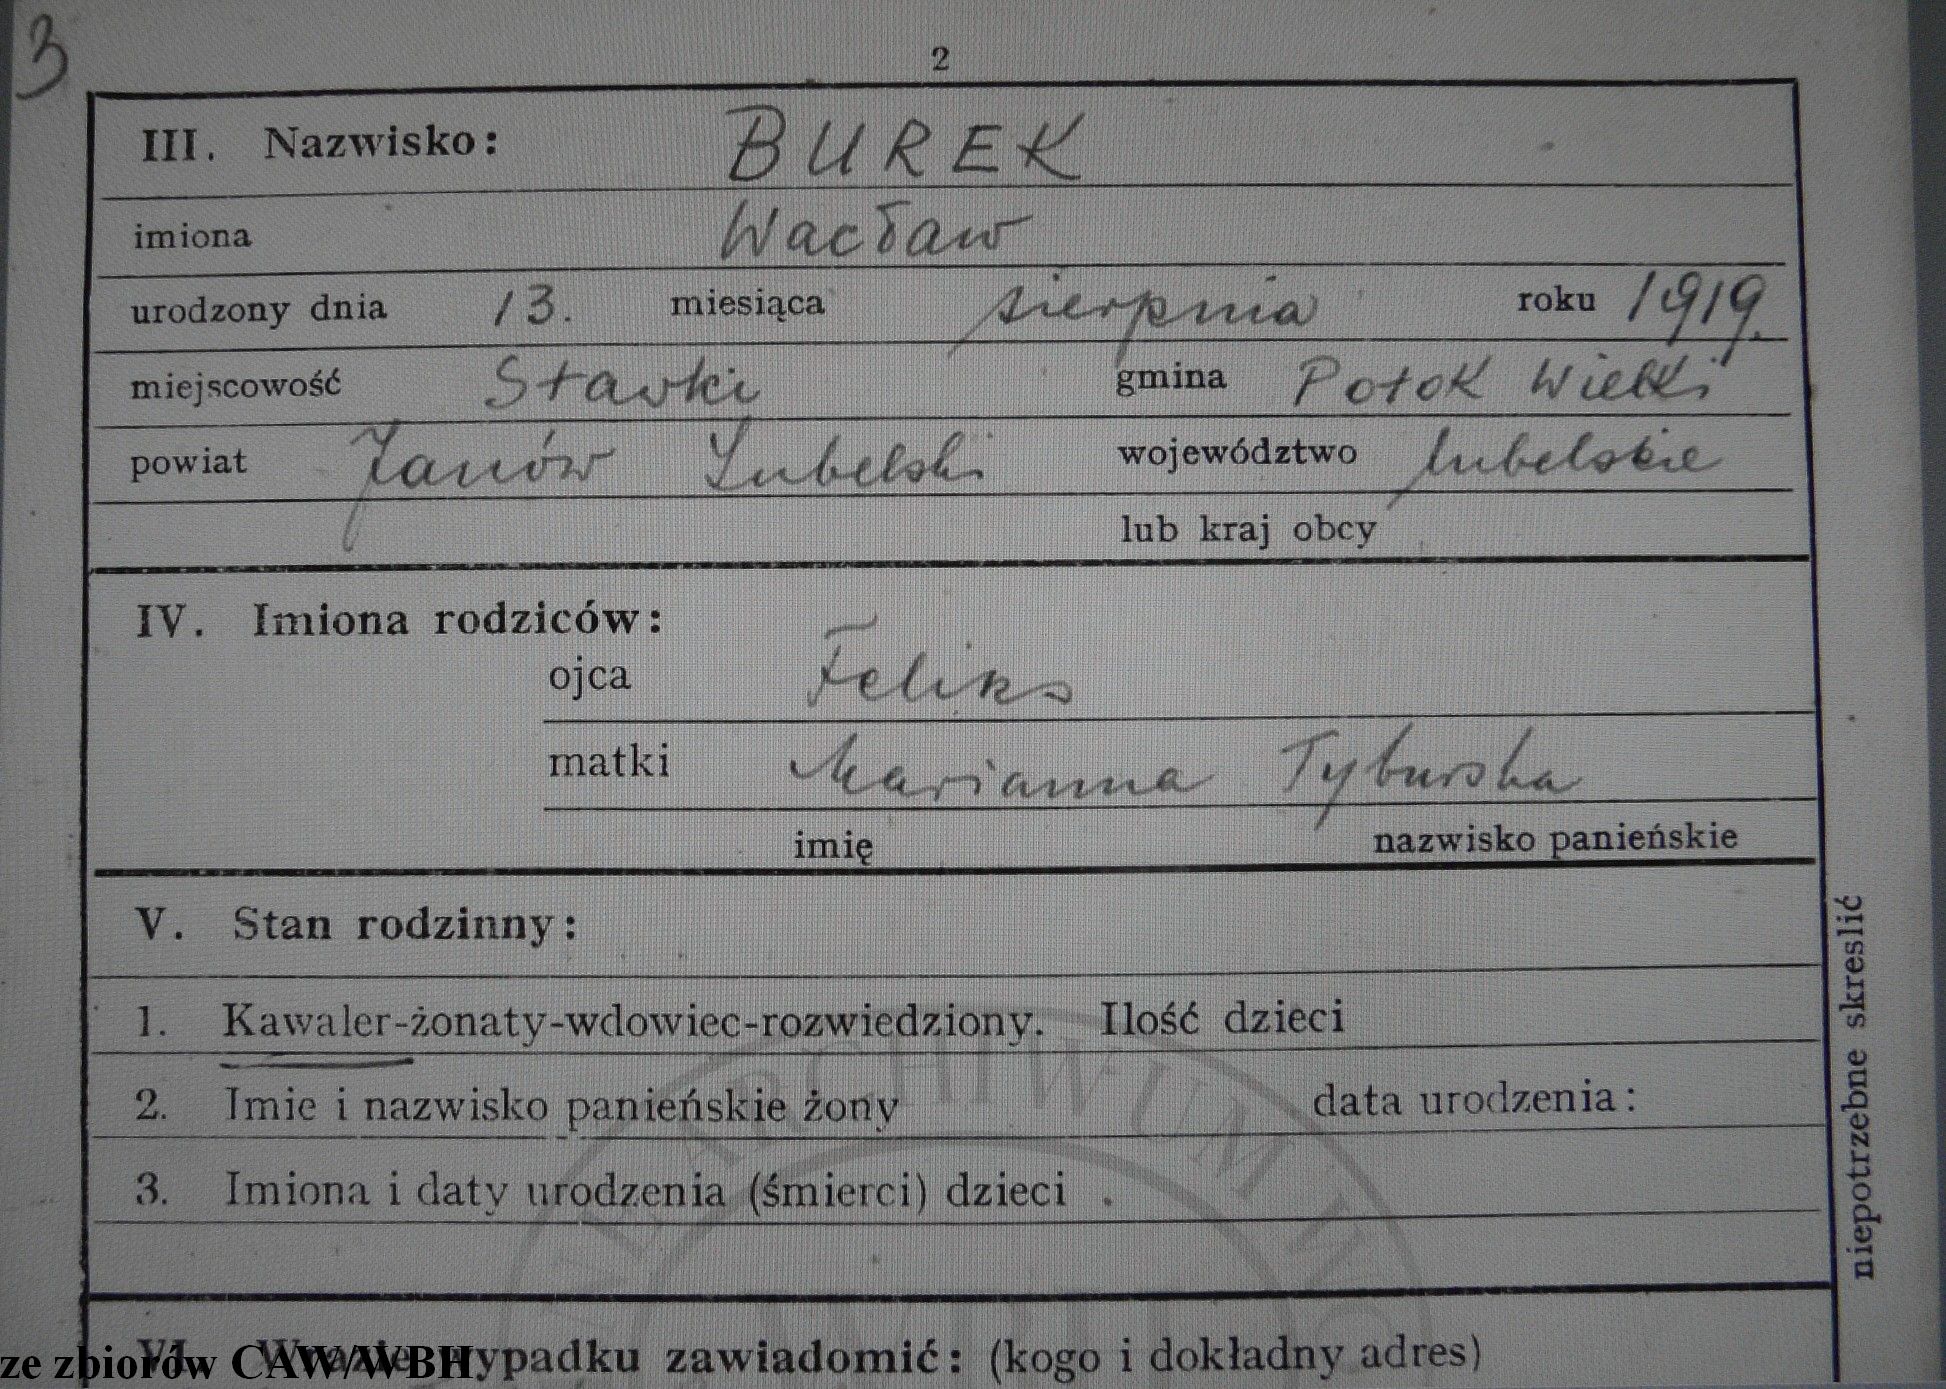 3
2
III. Nazwisko: BUREK
imiona Wacław
urodzony dnia 13. miesiąca sierpnia roku 1919.
miejscowość Stawki gmina Potok Wielki
powiat Janów Lubelski województwo lubelskie
lub kraj obcy
IV. Imiona rodziców:
ojca Feliks
matki Marianna Tyburska
imię nazwisko panieńskie
V. Stan rodzinny:
1. Kawaler-żonaty-wdowiec-rozwiedziony. Ilość dzieci
2. Imie i nazwisko panieńskie żony data urodzenia:
3. Imiona i daty urodzenia (śmierci) dzieci .
niepotrzebne skreslić
VI. W razie wypadku zawiadomić: (kogo i dokładny adres)
ze zbiorów CAW/WBH
ARCHIWUM